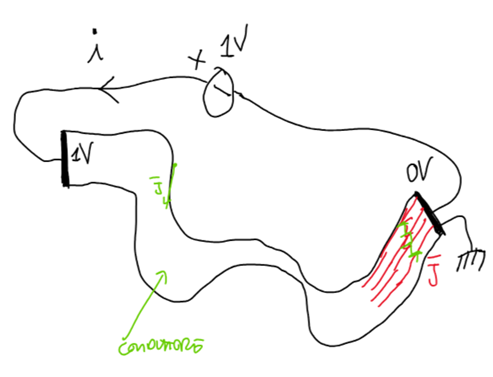 i
+ 1V
1V
J
0V
J
CONDUTTORE